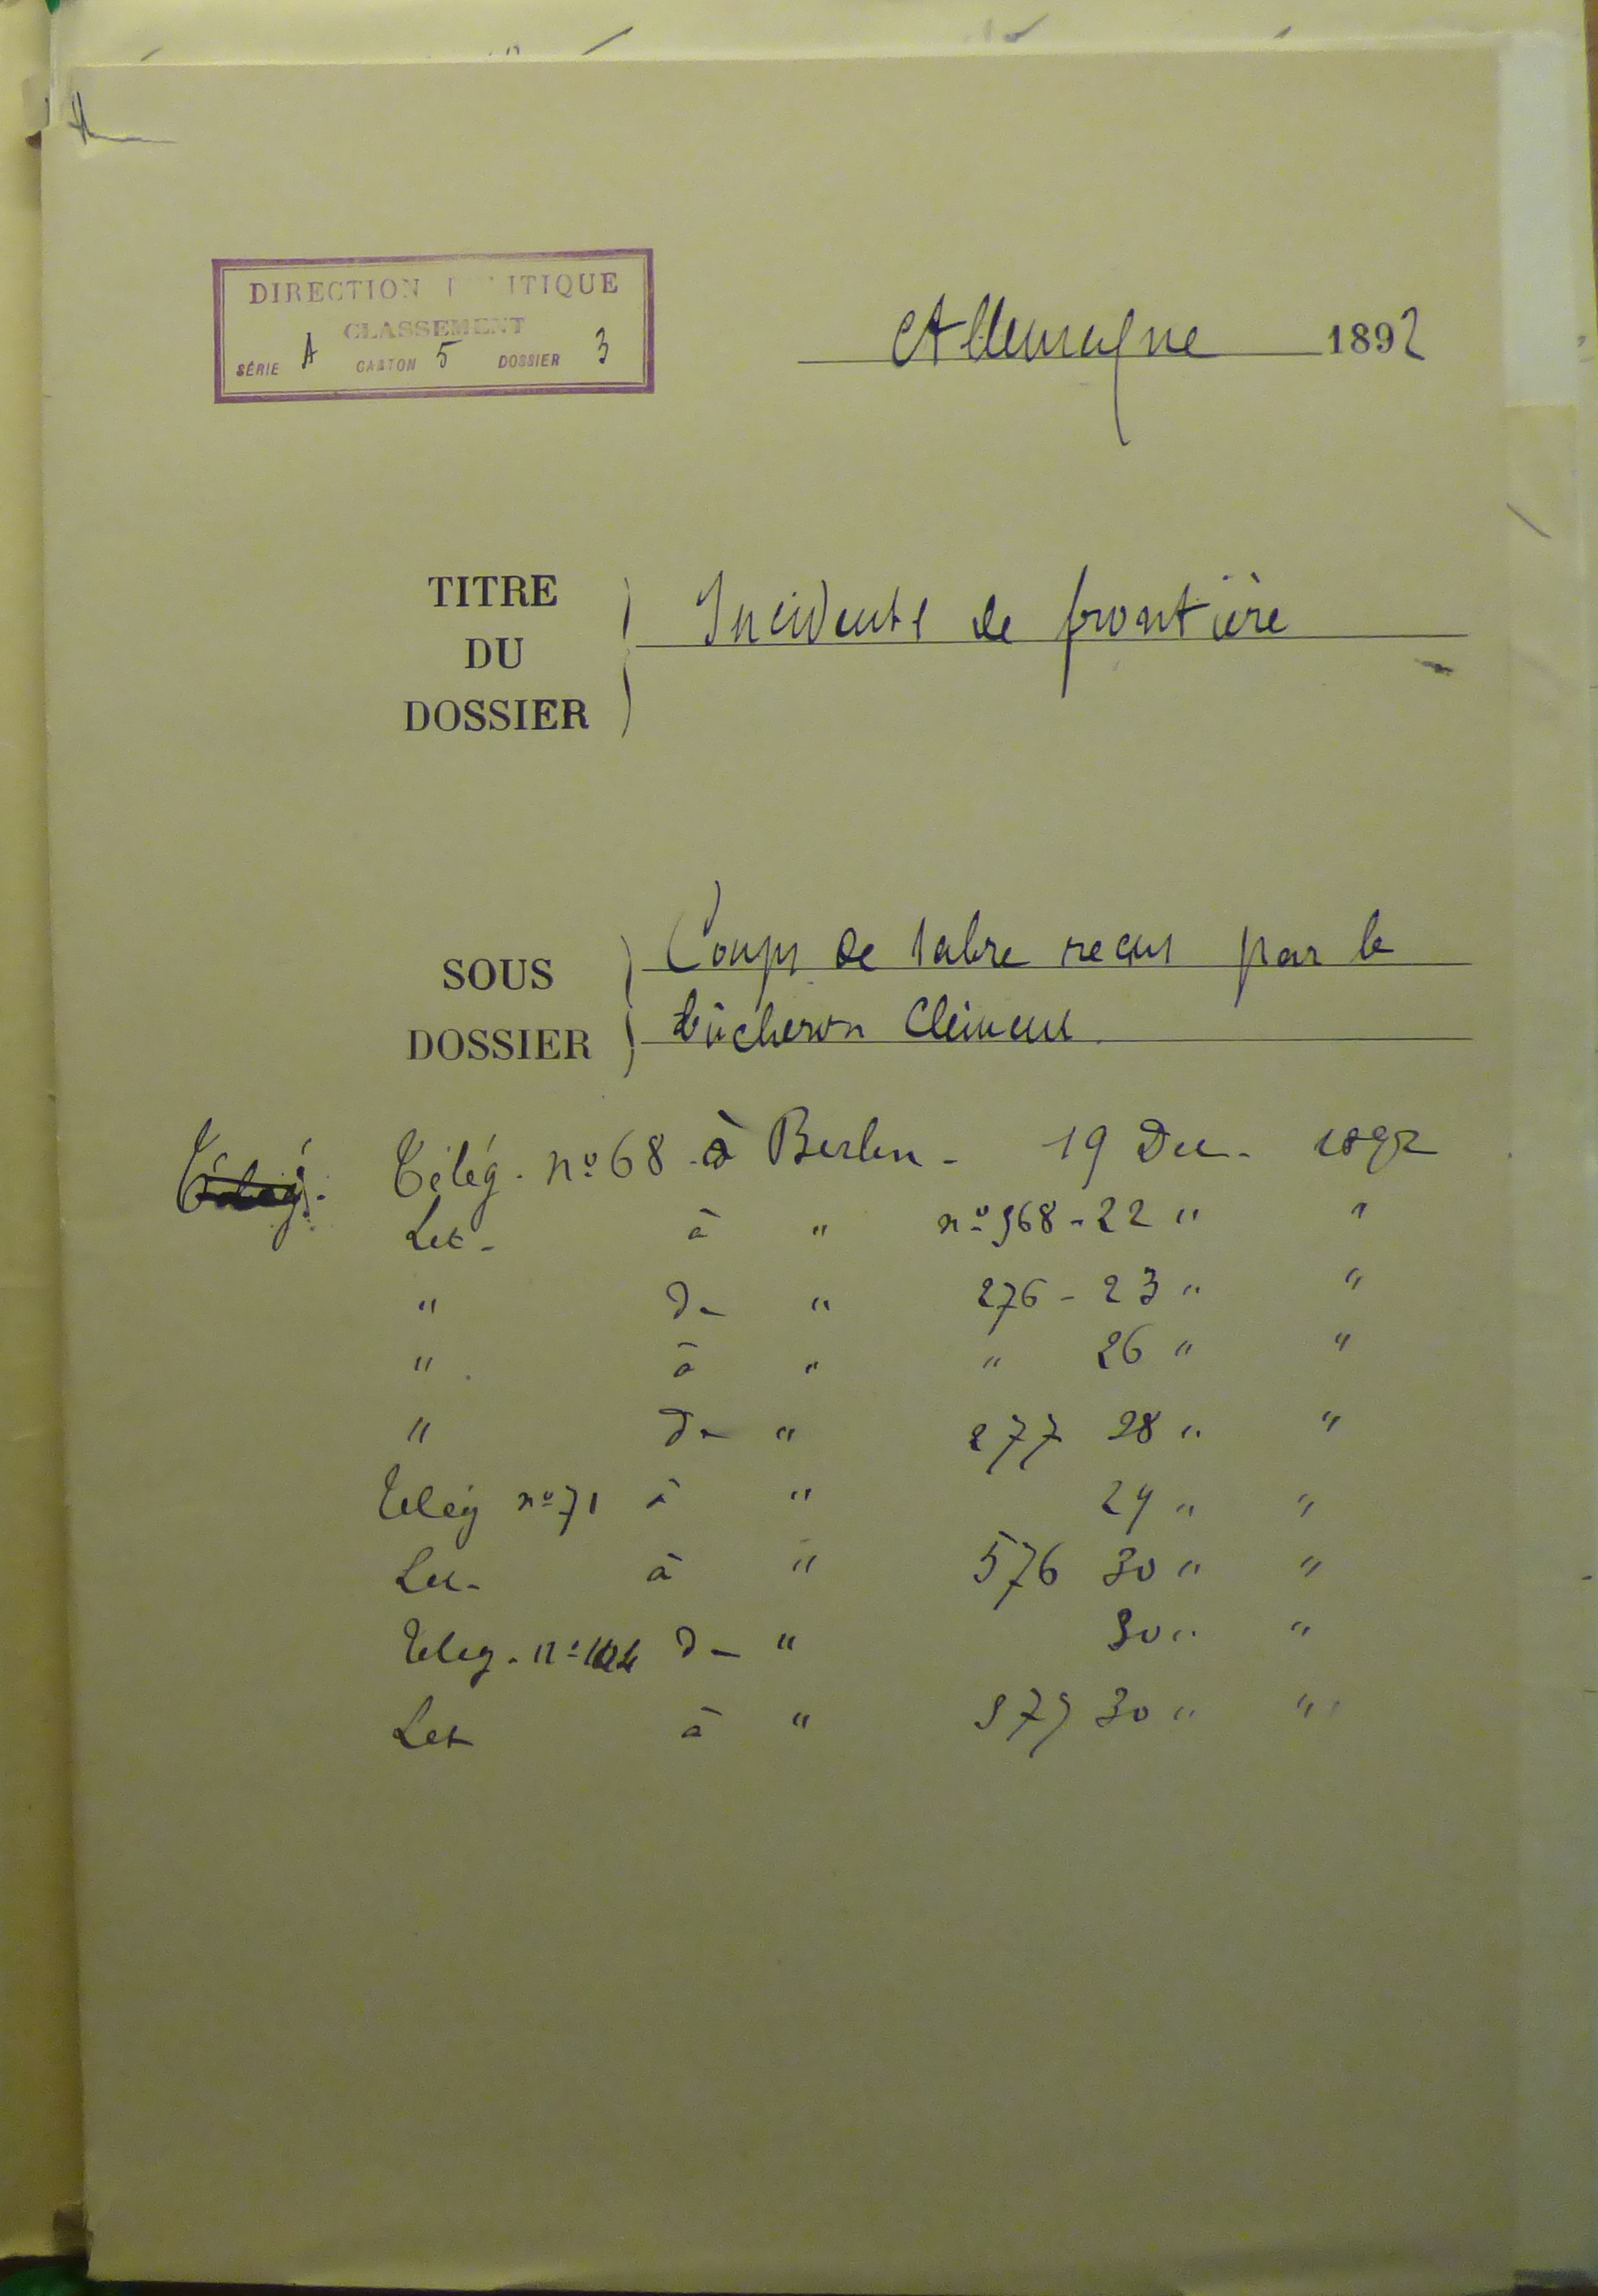 DIRECTION POLITIQUE
CLASSEMENT
SÉRIE A CARTON 5 DOSSIER 3
Allemagne 1892
TITRE
DU
DOSSIER
Incidents de frontière
SOUS
DOSSIER
Coups de sabre reçus par le
bûcheron Clément
Télég. Télég. nº 68 à Berlin - 19 Dec. 1892
Let - à " nº 568 - 22 " "
" de " 276 - 23 " "
" à " " 26 " "
" de " 277 28 " "
Télég nº 71 à " 29 " "
Let - à " 576 30 " "
Télég. nº de " 30 " "
Let à " 30 " "